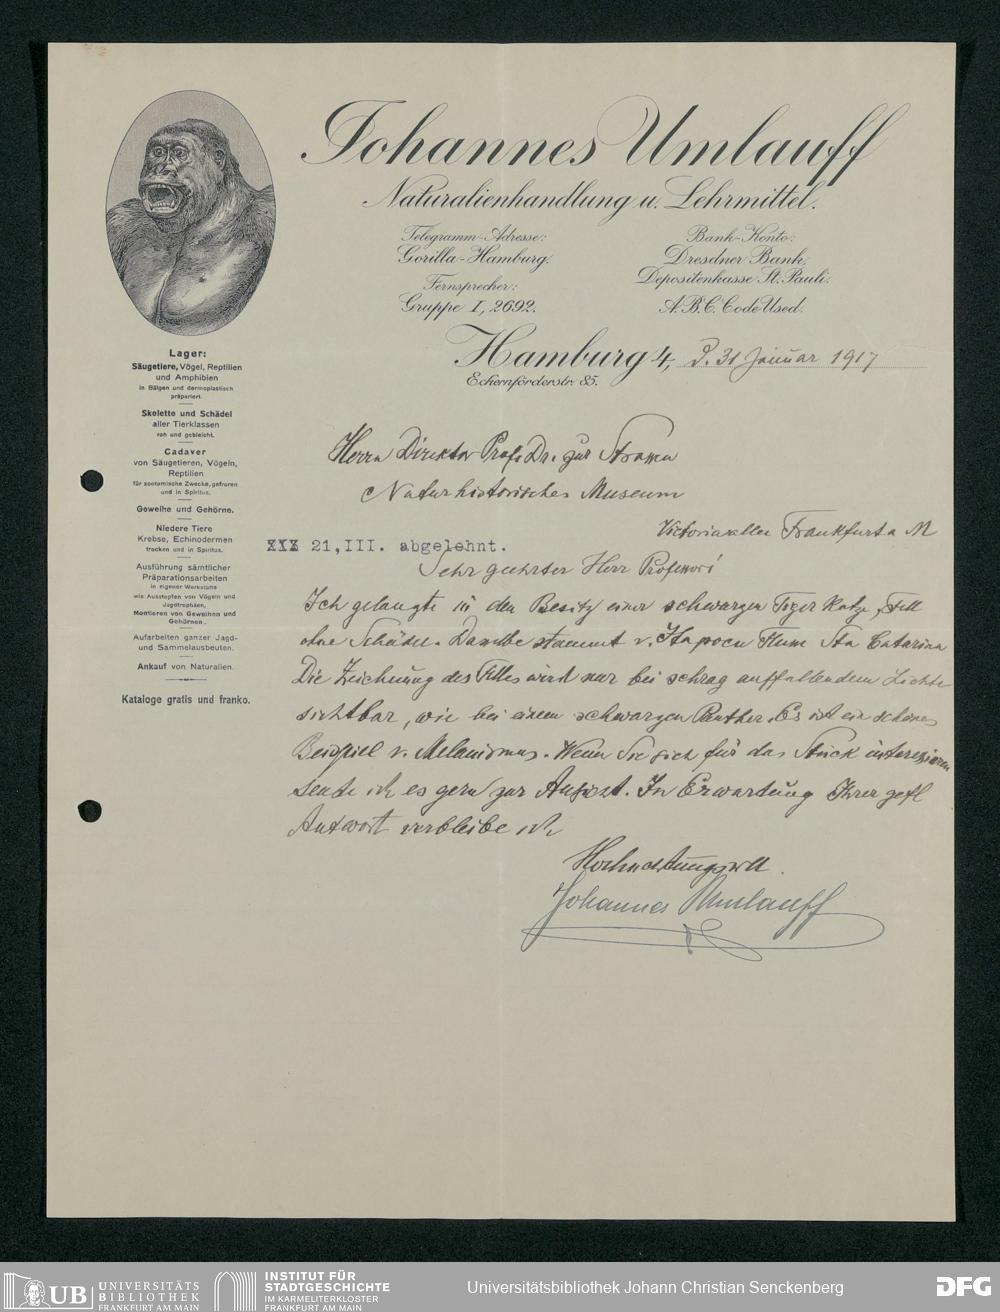 Johannes Umlauff
Naturalienhandlung u. Lehrmittel.
Telegramm-Adresse:
Gorilla-Hamburg.
Fernsprecher:
Gruppe I, 2692.
Bank-Konto:
Dresdner Bank,
Depositenkasse St. Pauli.
A.B.C. Code Used.
Hamburg 4, d. 31 Januar 1917
Eckernförderstr. 85.
Lager:
Säugetiere, Vögel, Reptilien
und Amphibien
in Bälgen und dermoplastisch
präpariert.
Skelette und Schädel
aller Tierklassen
roh und gebleicht.
Cadaver
von Säugetieren, Vögeln,
Reptilien
für zootomische Zwecke, gefroren
und in Spiritus.
Geweihe und Gehörne.
Niedere Tiere
Krebse, Echinodermen
trocken und in Spiritus.
Ausführung sämtlicher
Präparationsarbeiten
in eigener Werkstatt
wie Ausstopfen von Vögeln und
Jagdtrophäen,
Montieren von Geweihen und
Gehörnen.
Aufarbeiten ganzer Jagd-
und Sammelausbeuten.
Ankauf von Naturalien.
Kataloge gratis und franko.
Herrn Direktor Prof. Dr. zur Strassen
Naturhistorisches Museum
Victoriaallee Frankfurt a M
21,III. abgelehnt.
Sehr geehrter Herr Professor!
Ich gelangte in den Besitz einer schwarzen Tiger Katze, Fell
ohne Schädel. Dasselbe stammt v. Itapocu Flum Sta Catarina
Die Zeichnung des Felles wird nur bei schrag auffallendem Lichte
sichtbar, wie bei einem schwarzen Panther. Es ist ein schönes
Beispiel v. Melanismus. Wenn Sie sich für das Stück interessieren
sende ich es gern zur Ansicht. In Erwartung Ihrer gefl
Antwort verbleibe ich
Hochachtungsvoll
Johannes Umlauff
UB UNIVERSITÄTS
BIBLIOTHEK
FRANKFURT AM MAIN
INSTITUT FÜR
STADTGESCHICHTE
IM KARMELITERKLOSTER
FRANKFURT AM MAIN
Universitätsbibliothek Johann Christian Senckenberg
DFG